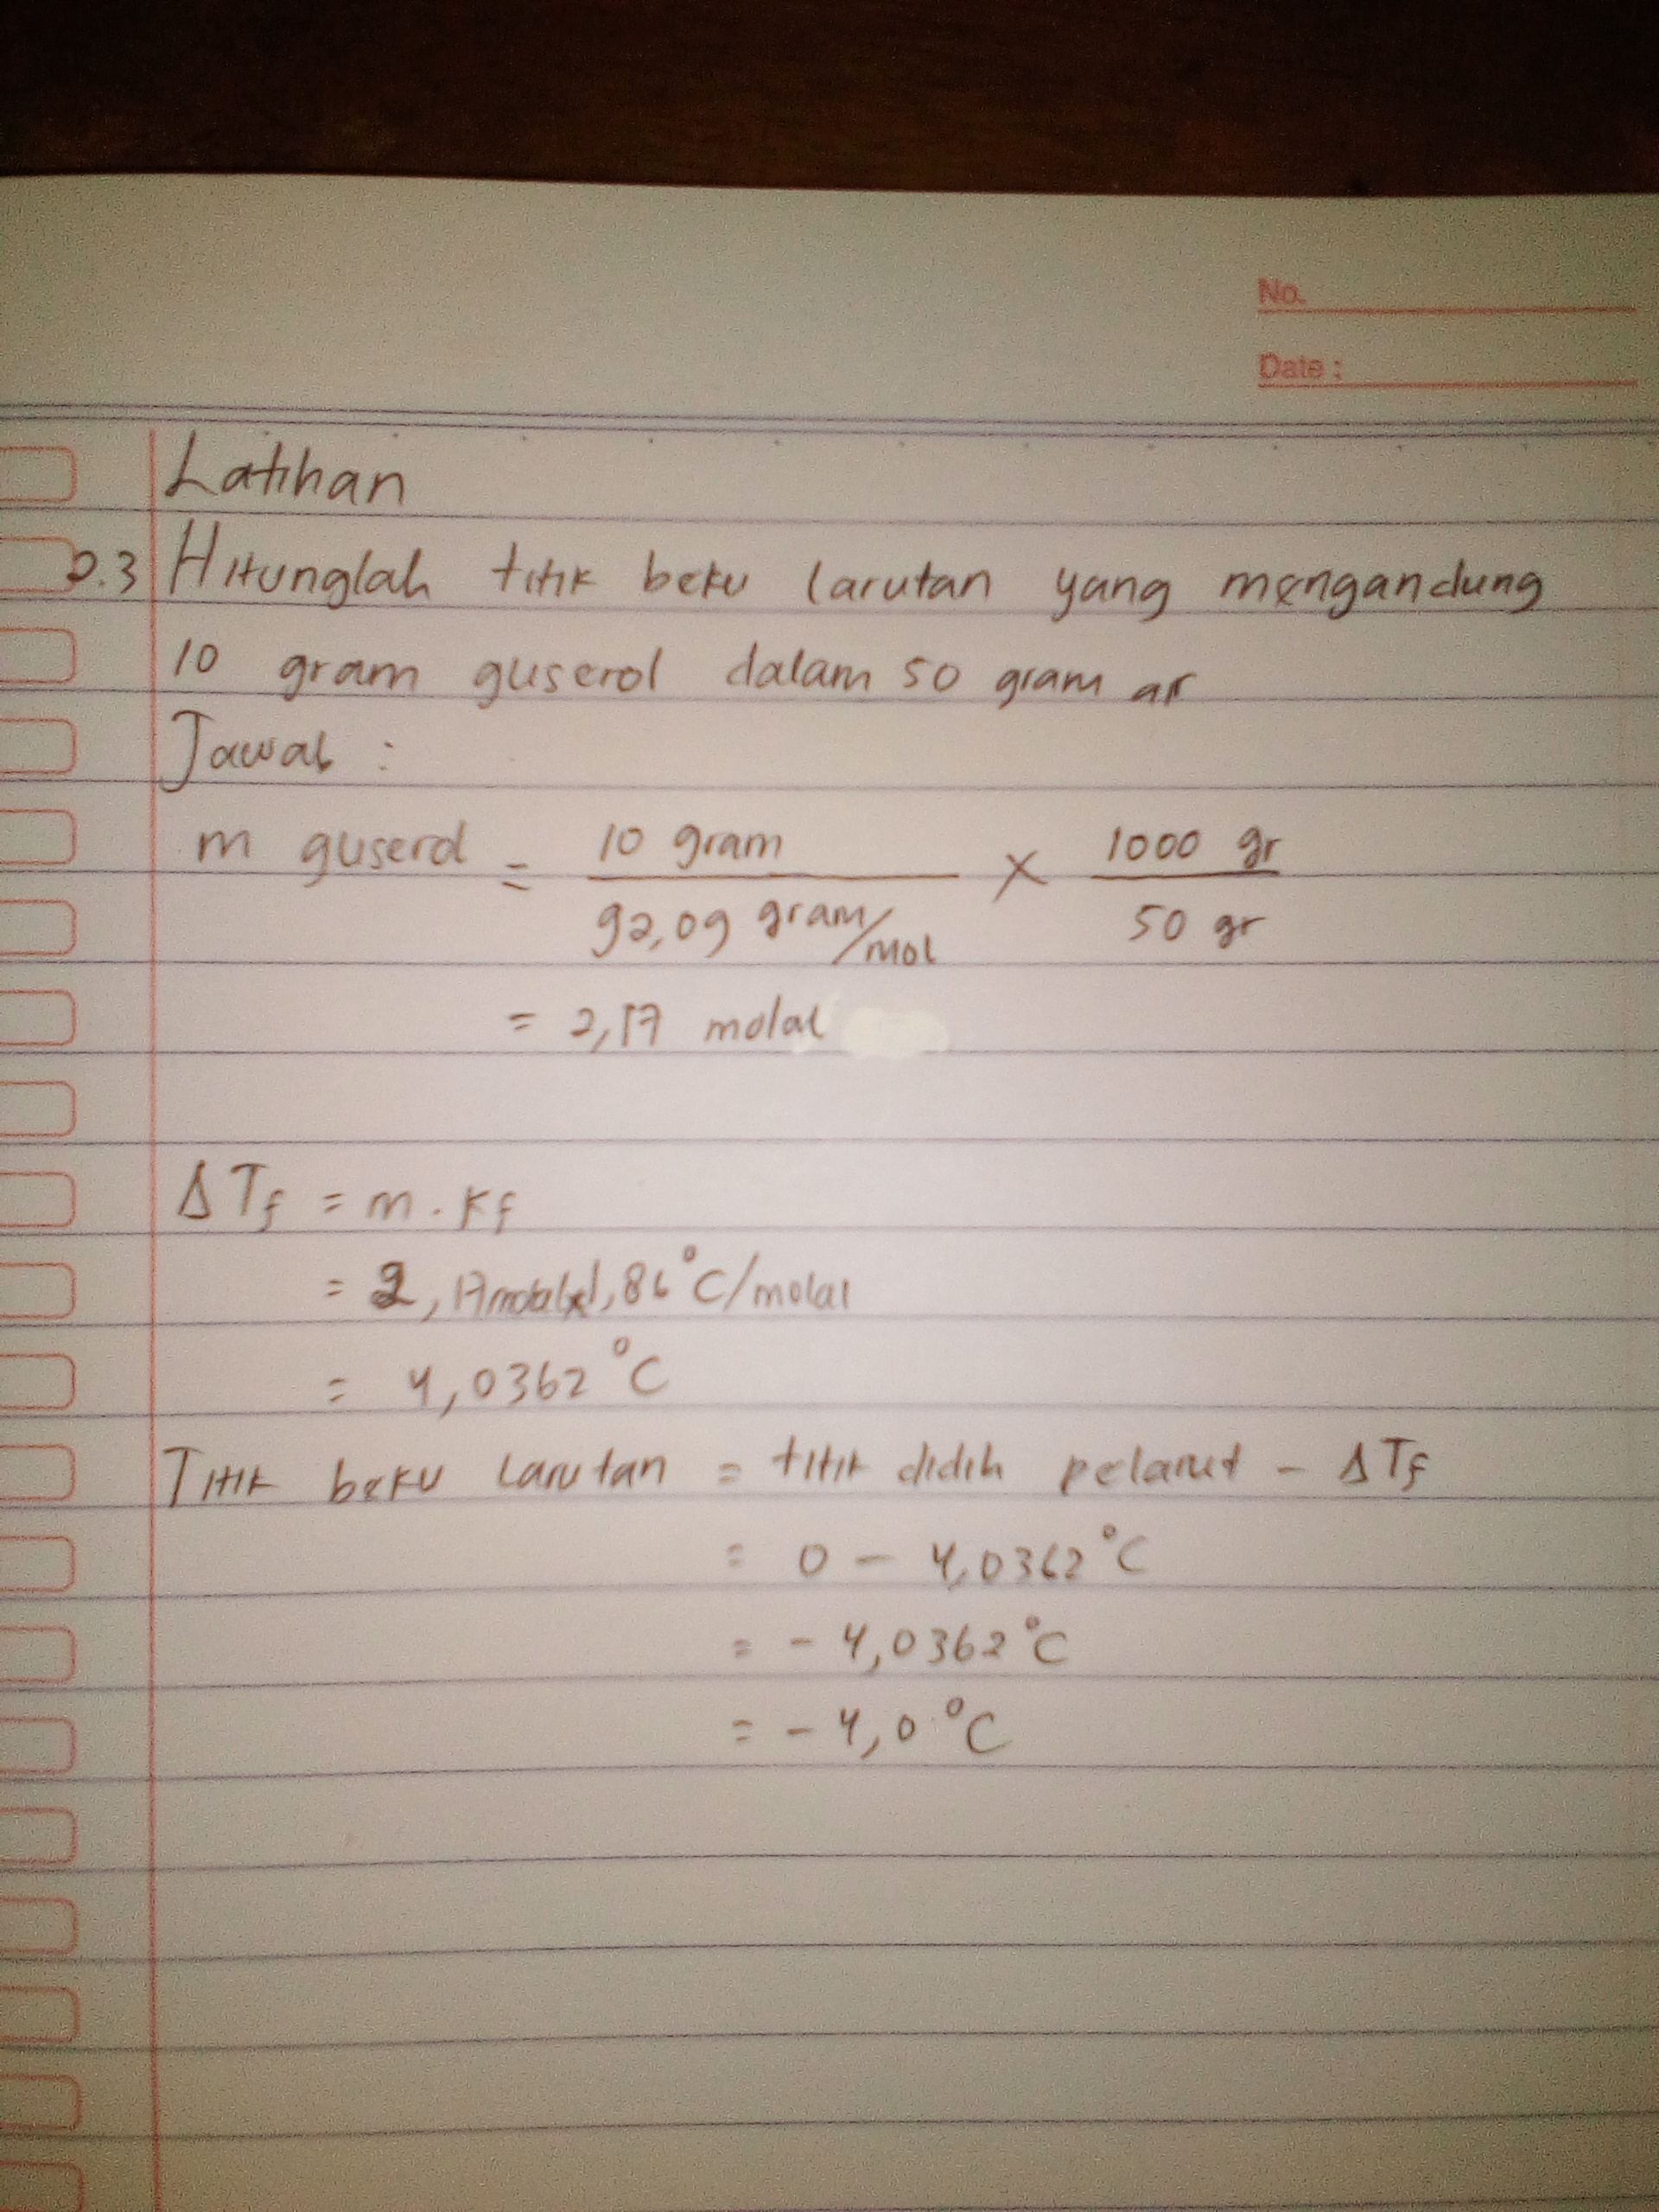 No.
Date :
Latihan
2.3 Hitunglah titik beku larutan yang mengandung
10 gram gliserol dalam 50 gram air
Jawab :
m gliserol = 10 gram / 92,09 gram/mol × 1000 gr / 50 gr
= 2,17 molal
Δ Tf = m . Kf
= 2,17 molal x 1,86 °C/molal
= 4,0362 °C
Titik beku larutan = titik didih pelarut - Δ Tf
= 0 - 4,0362 °C
= - 4,0362 °C
= - 4,0 °C